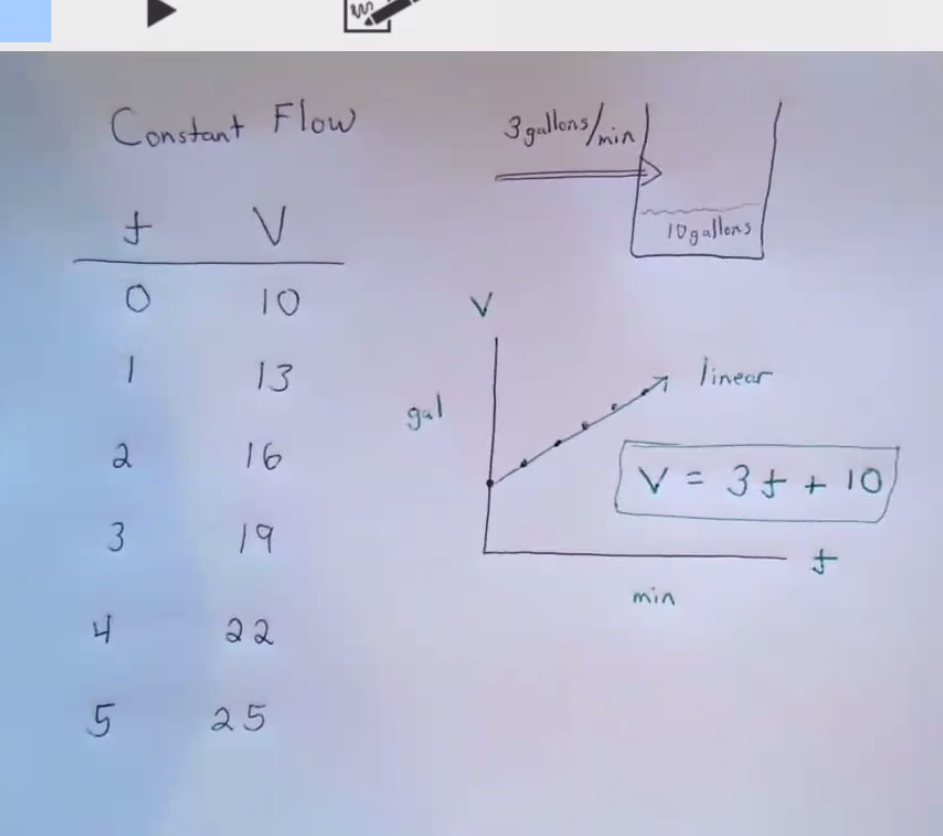 Constant Flow
t V
0 10
1 13
2 16
3 19
4 22
5 25
3 gallons/min
10 gallons
V
linear
gal
V = 3t + 10
t
min